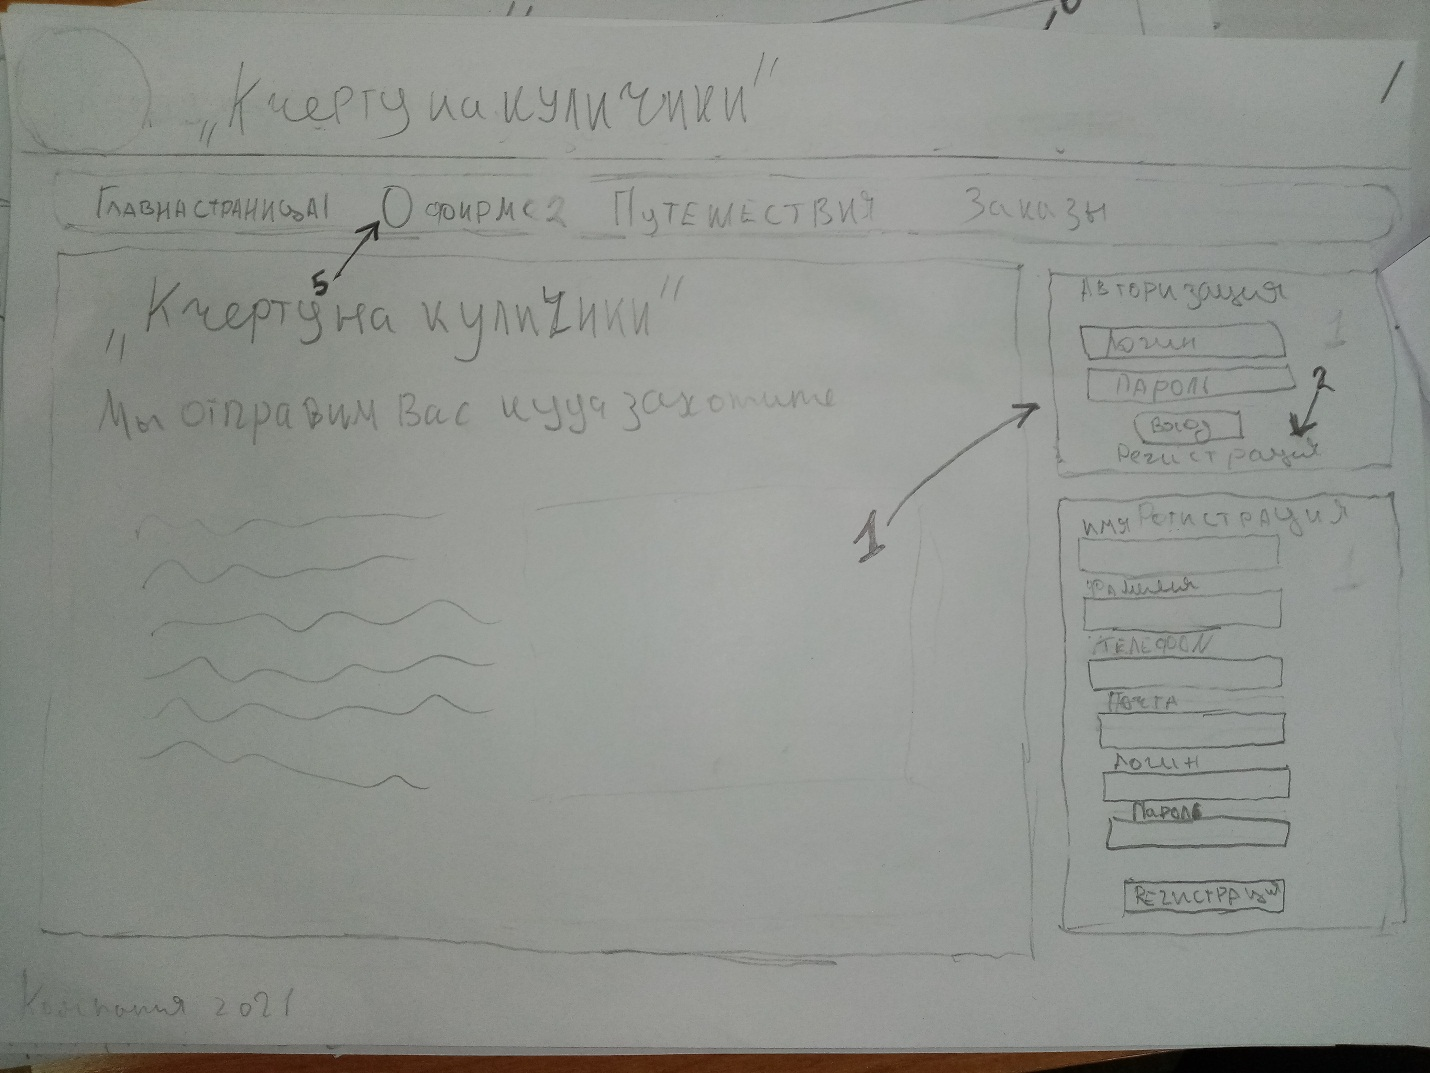 „К черту на кулички"
1
ГЛАВНА СТРАНИЦА 1 О фирме 2 ПУТЕШЕСТВИЯ Заказы
5
„К черту на кулички"
Мы отправим Вас куда захотите
1
АВТОРИЗАЦИЯ
1
Логин
ПАРОЛЬ
2
Вход
Регистрация
РЕГИСТРАЦИЯ
ИМЯ
1
Фамилия
ТЕЛЕФОN
Почта
Логин
Пароль
РЕГИСТРАЦИЯ
Компания 2021